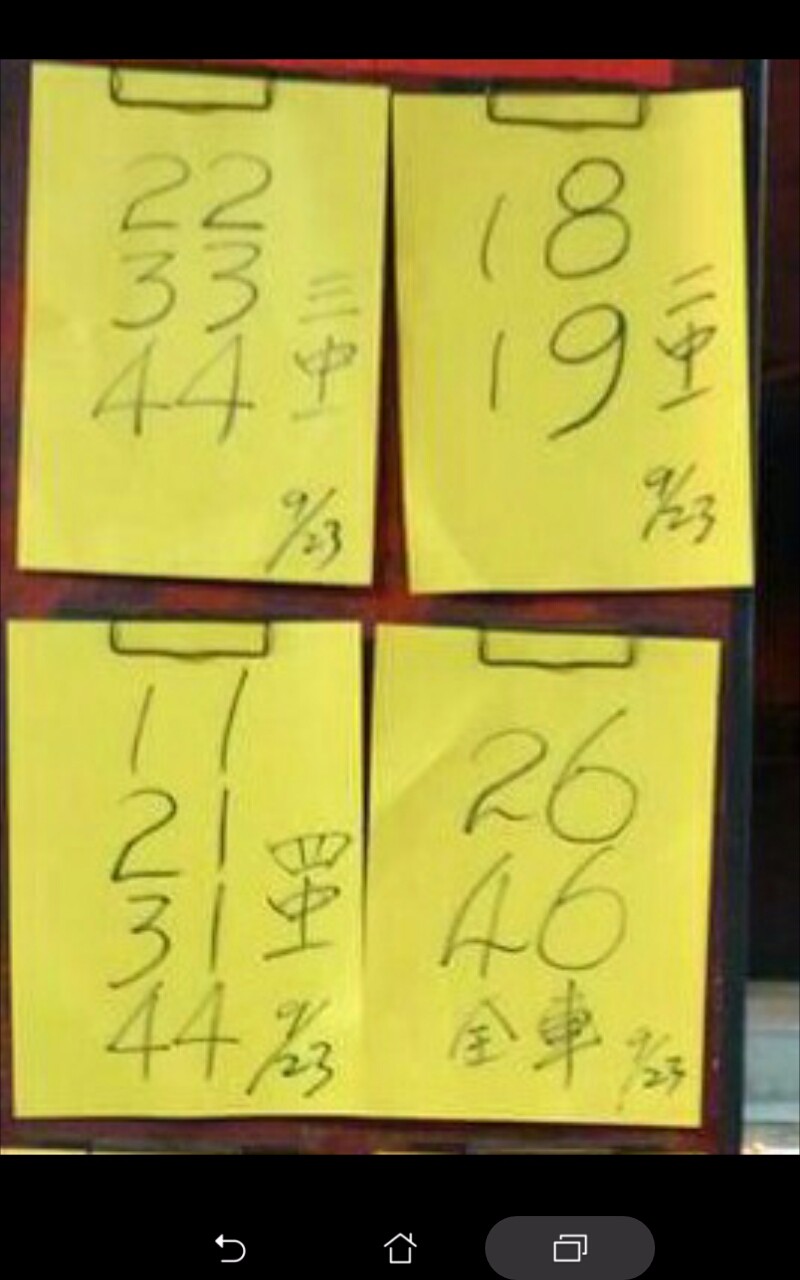 22
33
44
三中一
9/23
18
19
二中一
9/23
11
21
31
44
四中一
9/23
26
46
全車
9/23